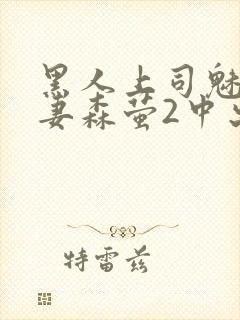 黑人上司魅
妻森萤2中出
特雷兹